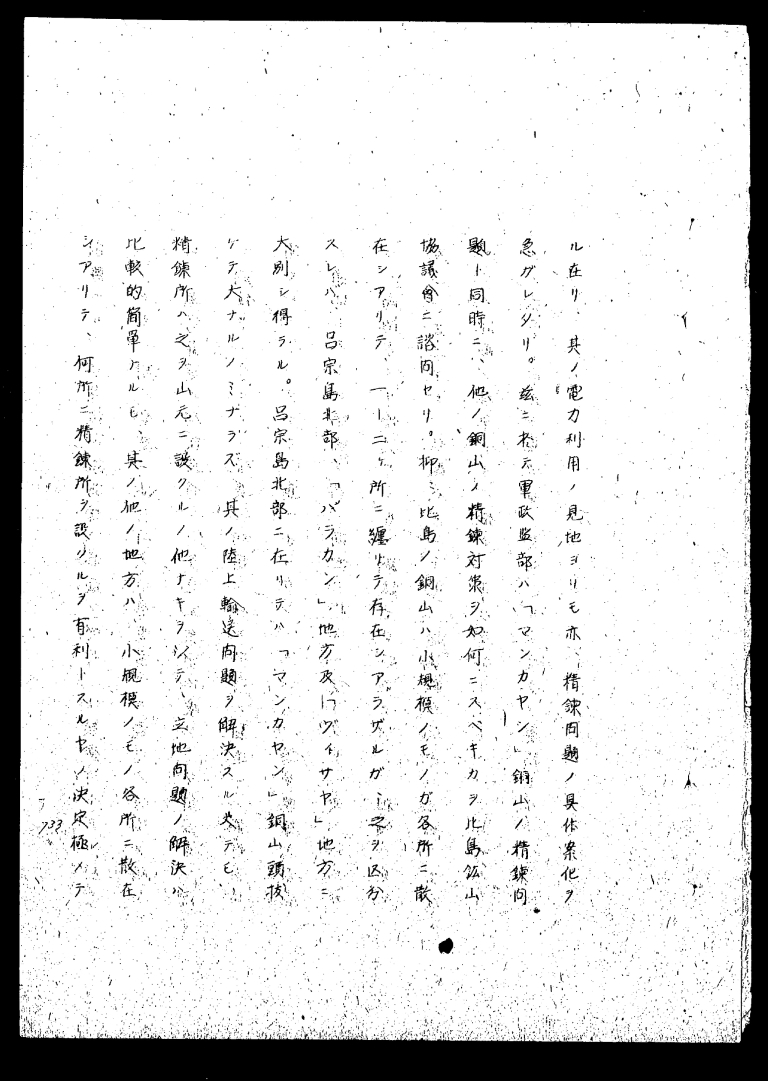 ル在リ、其ノ電力利用ノ見地ヨリモ亦、精錬問題ノ具体案化ヲ
急ガレタリ。茲ニ於テ軍政監部ハ「マンカヤン」銅山ノ精錬問
題ト同時ニ、他ノ銅山ノ精錬対策ヲ如何ニスベキカヲ比島鉱山
協議会ニ諮問セリ。抑ミ比島ノ銅山ハ小規模ノモノガ各所ニ散
在シアリテ、一ー二ヶ所ニ纏リテ存在シアラザルガ、之ヲ区分
スレハ、呂宋島北部、「パラカン」地方及「ヴィサヤ」地方ニ
大別シ得ラル。呂宋島北部ニ在リテハ「マンカヤン」銅山頭抜
ケテ大ナルノミナラズ、其ノ陸上輸送問題ヲ解決スル丈デモ、
精錬所ハ之ヲ山元ニ設クルノ他ナキヲ以テ、立地問題ノ解決ハ
比較的簡単ナルモ、其ノ他ノ地方ハ、小規模ノモノ各所ニ散在
シアリテ、何所ニ精錬所ヲ設クルヲ有利トスルヤノ決定極メテ
733